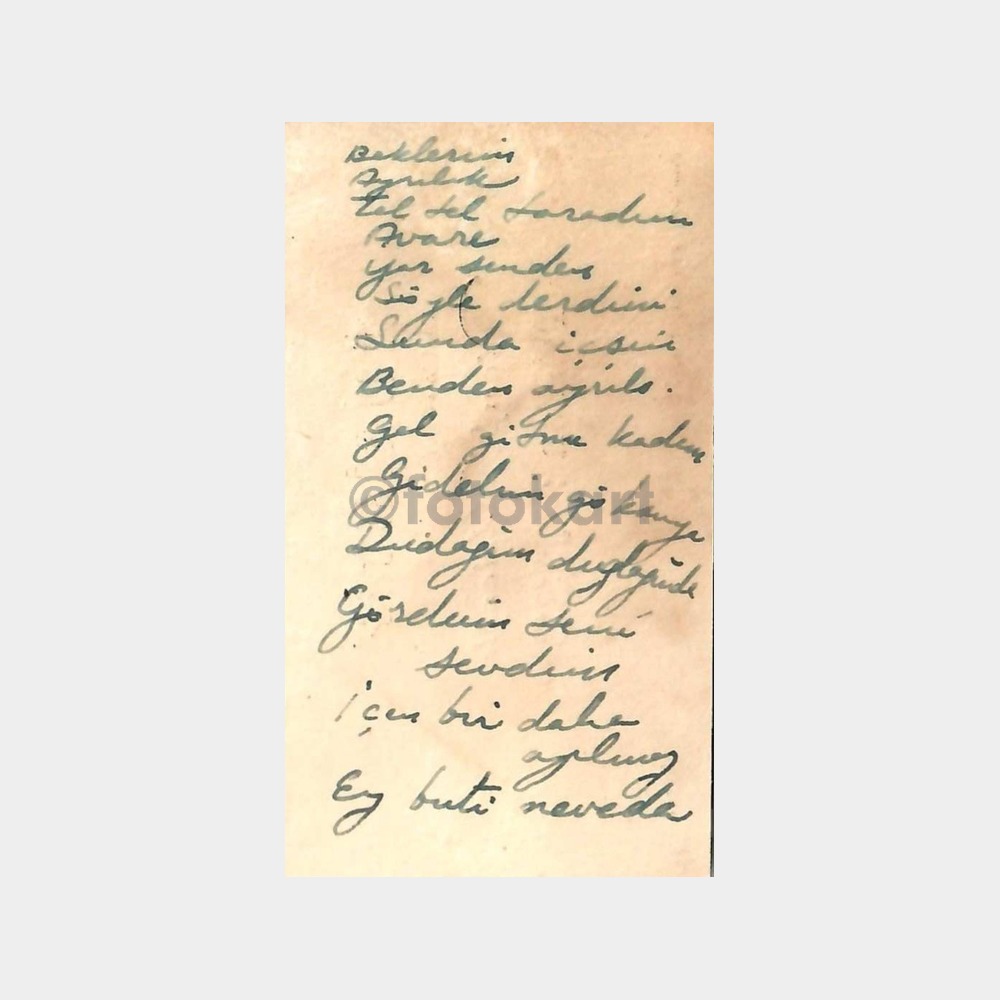 Beklerim
Ayrılık
Tel tel taradım
Avare
Yar senden
Söyle derdini
Sunda içsin
Benden ayrılı.
Gel gitme kadın
Gidelim gö
Dudağım dudağında
Gördüm seni
sevdim
İçen bir daha
ayılmaz
Ey buti neveda
©fotokart